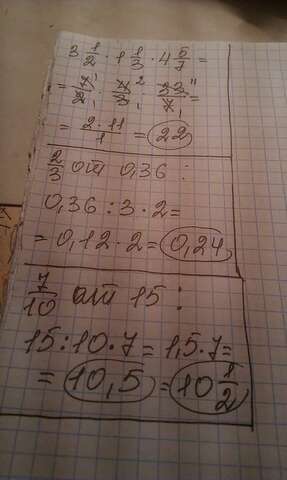 3 1/2 · 1 1/3 · 4 5/7 =
= 7/2 · 4/3 · 33/7 =
= 2·11/1 = 22
2/3 от 0,36 :
0,36 : 3 · 2 =
= 0,12 · 2 = 0,24
7/10 от 15 :
15 : 10 · 7 = 1,5 · 7 =
= 10,5 = 10 1/2